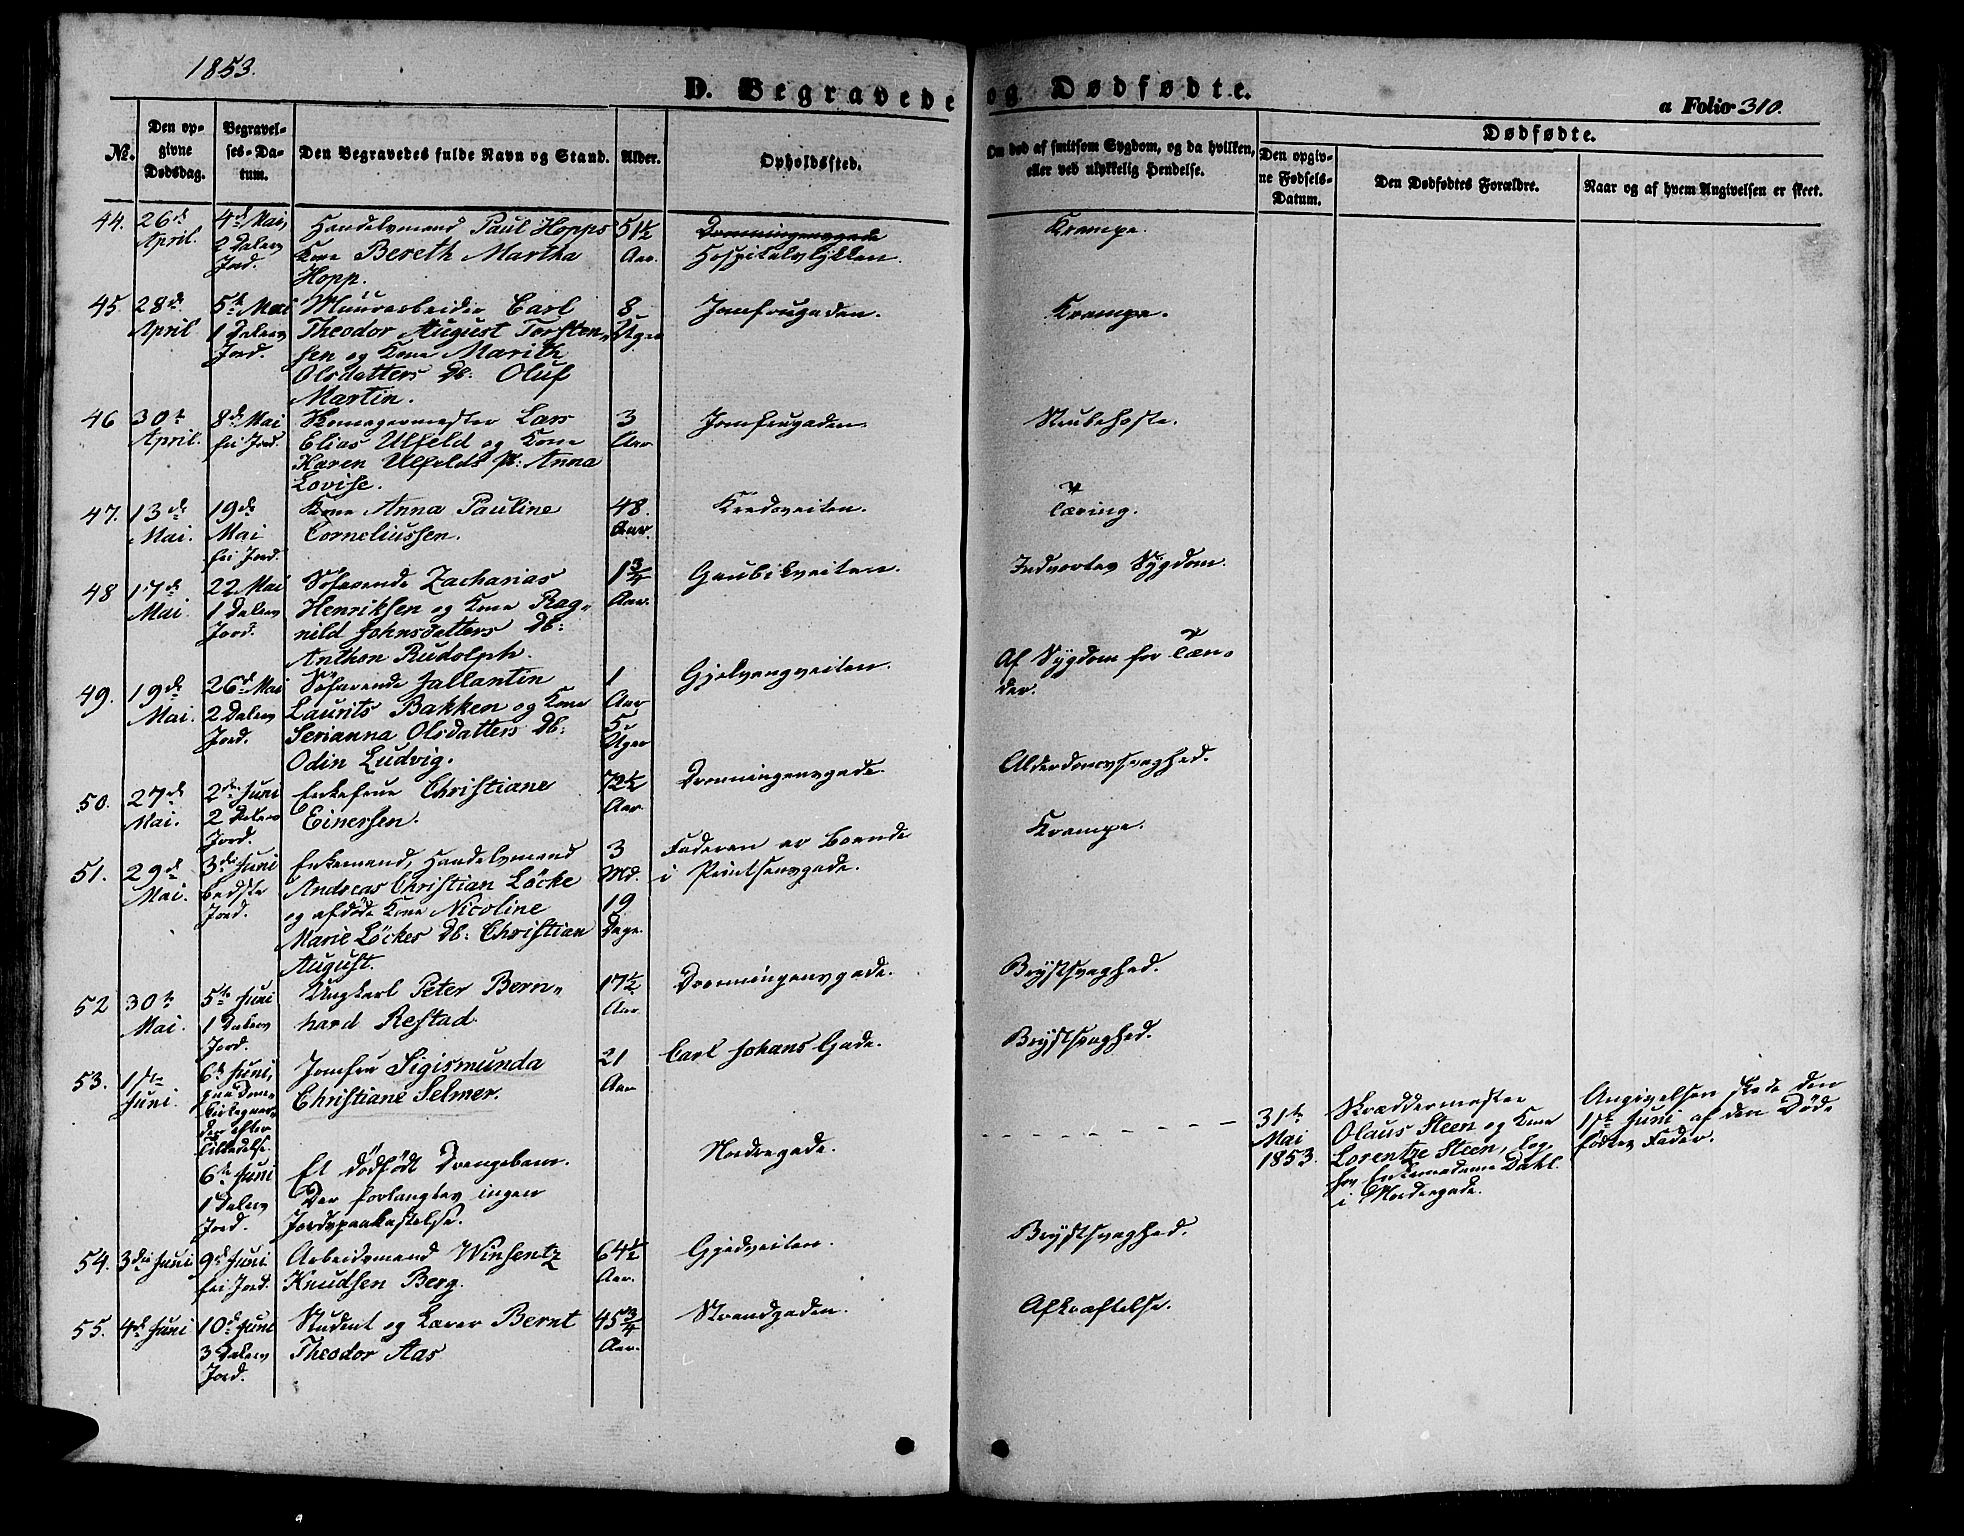 1853.
D. Begravede og Dødfødte.
a Folio 310.
No.
Den opgivne Dødsdag.
Begravelses-Datum.
Den Begravedes fulde Navn og Stand.
Alder.
Opholdssted.
Om død af smitsom Sygdom, og da hvilken, eller ved ulykkelig Hendelse.
Dødfødte.
Den opgivne Fødsels-Datum.
Den Dødfødtes Forældre.
Naar og af hvem Angivelsen er skeet.
44. 26de April. 4de Mai, 2 Dalers Jord.
Handelsmand Paul Hopps
Kone Bereth Martha
Hopp.
51½ Aar.
Dronningensgade
Hospitalsløkken.
Krampe.
45 28de April 5te Mai 1 Dalers Jord.
Muurarbeider Carl
Theodor August Torsten-
sen og Kone Marith
Olsdatters Db: Oluf
Martin.
8 Uger
Jomfrugaden.
Krampe.
46 30te April. 8de Mai fri Jord.
Skomagermester Lars
Elias Ulfeld og Kone
Karen Ulfelds Pb: Anna
Lovise.
3 Aar
Jomfrugaden
Strubehoste.
47. 13de Mai. 19de Mai fri Jord.
Kone Anna Pauline
Corneliussen.
48. Aar.
Tæring.
48 17de Mai. 22 Mai 1 Dalers Jord.
Søfarende Zacharias
Henriksen og Kone Rag-
nild Johnsdatters Db:
Anthon Rudolph.
1¾ Aar.
Gaubikveiten.
Indvortes Sygdom.
49. 19de Mai. 26de Mai 2 Dalers Jord.
Søfarende Jallantin
Laurits Bakken og Kone
Serianna Olsdatters Db:
Odin Ludvig.
1 Aar 5 Uger
Gjelvangveiten.
Af Sygdom for Tæn-
der.
50. 27de Mai. 2den Juni 2 Dalers Jord.
Enkefrue Christiane
Einersen.
72½ Aar.
Dronningensgade.
Alderdomssvaghed.
51. 29de Mai. 3die Juni bedste Jord.
Enkemand, Handelsmand
Andreas Christian Löcke
og afdøde Kone Nicoline
Marie Löckes Db: Christian
August.
3 Md. 19 Dage
Faderen er boende
i Printsensgade.
Krampe.
52 30te Mai. 5te Juni 1 Dalers Jord.
Ungkarl Peter Bern-
hard Restad
17½ Aar
Dronningensgade.
Brystsvaghed.
53. 1ste Juni. 6te Juni, paa Dom-
kirkegaar-
den efter
Tilladelse.
Jomfru Sigismunda
Christiane Selmer.
21 Aar
Carl Johans Gade.
Brystsvaghed.
6te Juni 1 Dalers Jord.
Et dödfødt Drengebarn.
Der forlangtes ingen
Jordspaakastelse.
Nordregade.
31te Mai 1853.
Skræddermester
Olaus Steen og Kone
Lorentze Steen, log.
hos Enkemadame Dahl
i Nordregade.
Angivelsen skede den
1ste Juni af den Död-
fødtes Fader.
54. 3die Juni 9de Juni fri Jord.
Arbeidsmand Winsentz
Knudsen Berg.
64½ Aar.
Gjedveiten.
Brystsvaghed.
55. 4de Juni 10de Juni 3 Dalers Jord.
Student og Lærer Bernt
Theodor Aas
45¾ Aar.
Strandgaden.
Afkræftelse.